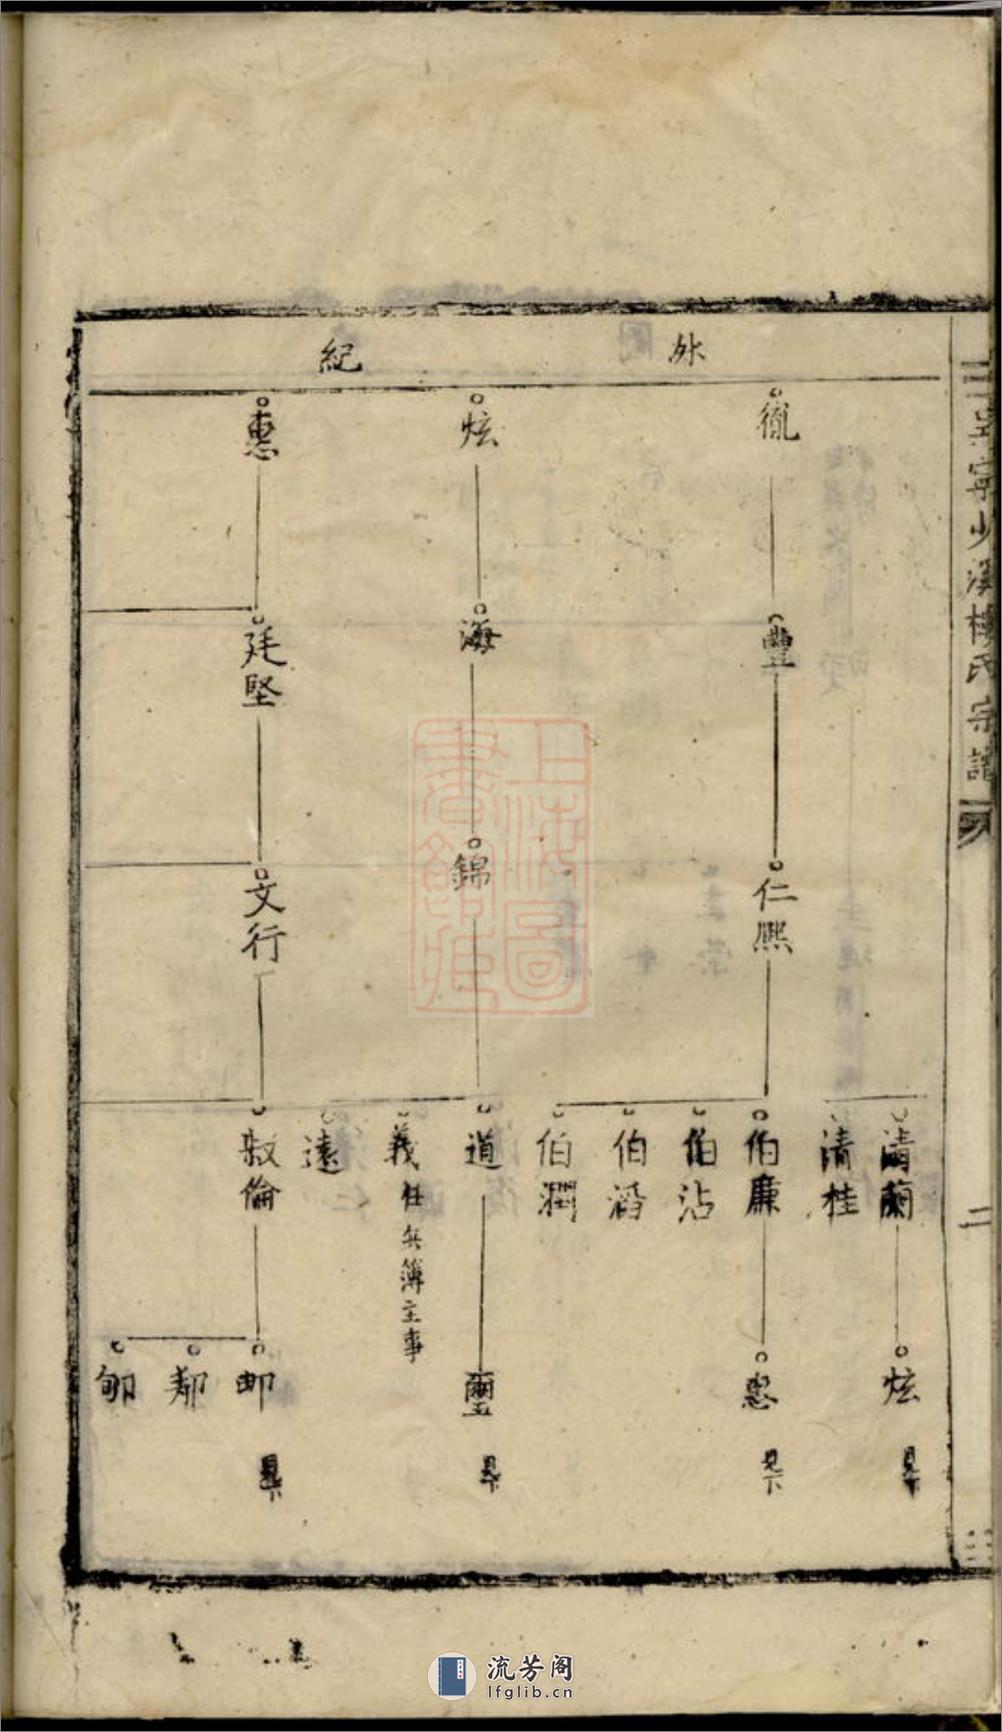 外紀
胤
豐
仁熙
清蘭
清桂
伯廉
伯沾
伯滔
伯潤
炫
見下
惠
見下
炫
海
錦
道
義
仕兵簿主事
遠
璽
見下
惠
廷堅
文行
敘倫
邮
鄀
郇
見下
少溪樓氏宗譜
二
上海圖書館藏
流芳阁
lfglib.cn